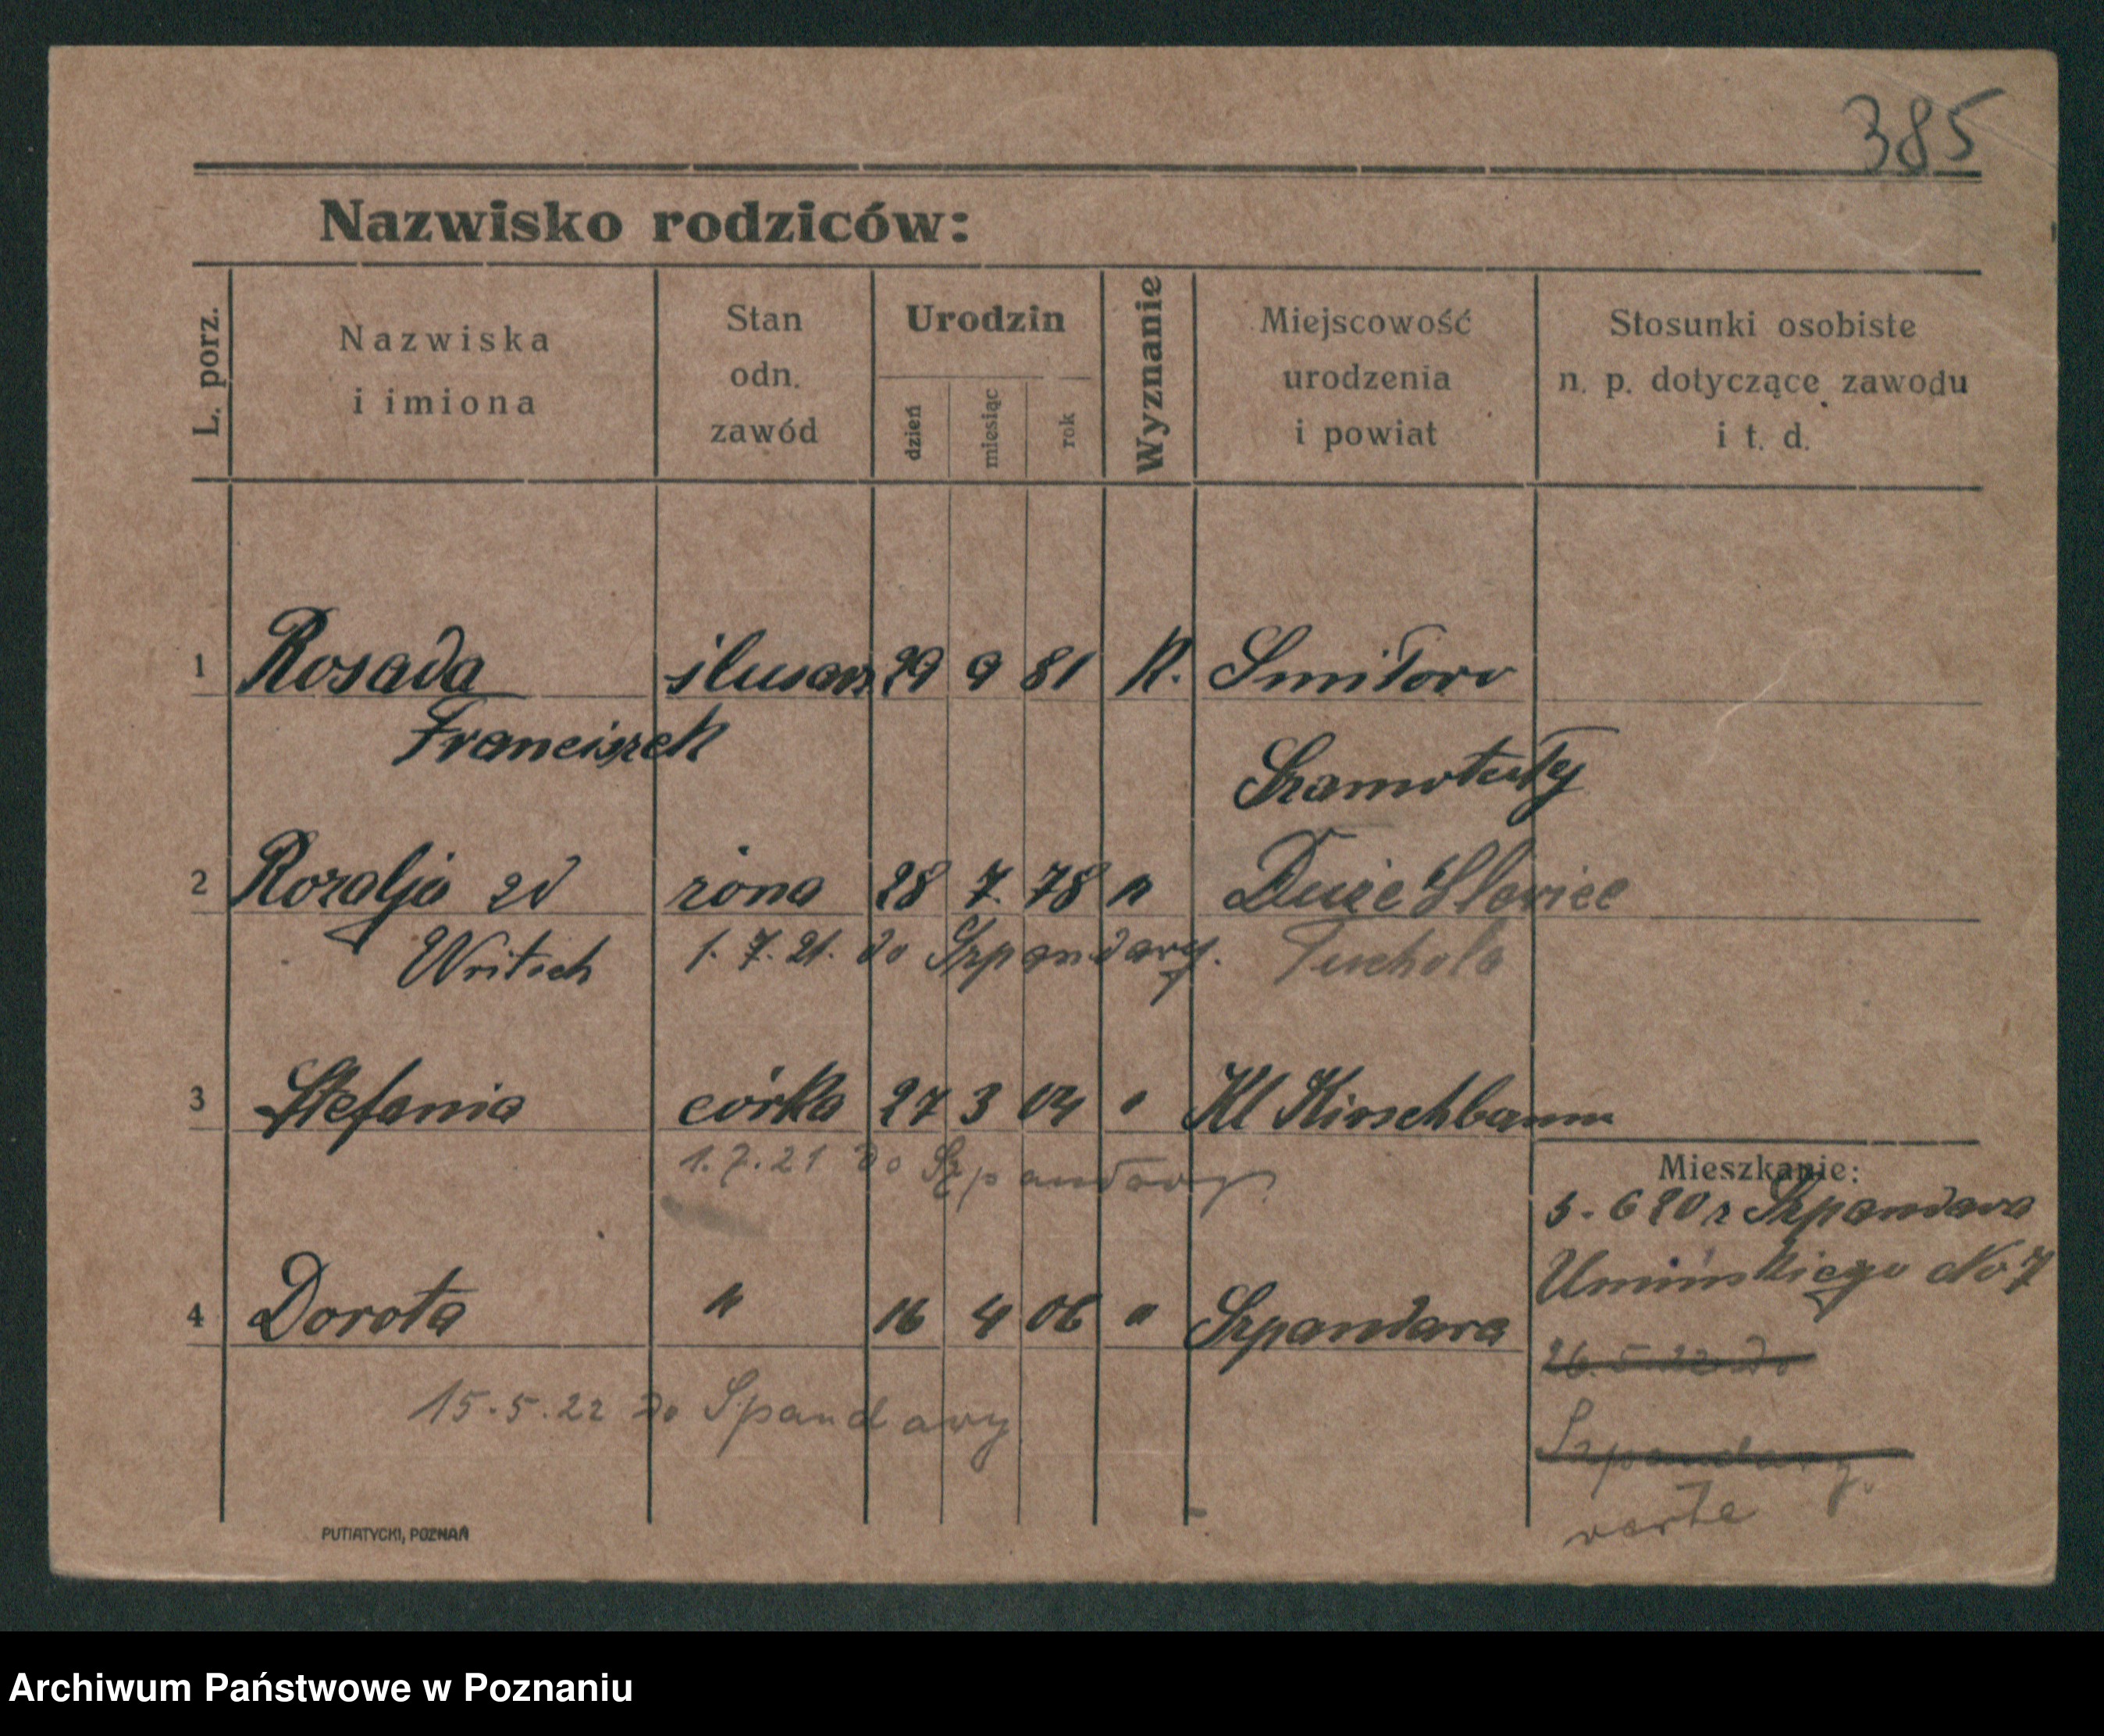 385
Nazwisko rodziców:
L. porz.
Nazwiska
i imiona
Stan
odn.
zawód
Urodzin
dzień
miesiąc
rok
Wyznanie
Miejscowość
urodzenia
i powiat
Stosunki osobiste
n. p. dotyczące zawodu
i t. d.
1 Rosada ślusarz 29 9 81 K. Smiłow
Franciszek
Szamotuły
2 Rozalja zd żona 28 7. 78 " Duże
Writsch 1. 7. 21. do Szpandawy. Tuchola
3 Stefania córka 27 3 04 " Kl Kirschbaum
1. 7. 21 do Szpandawy.
Mieszkanie:
5. 6 20 z Szpandawa
Umińskiego No 7
4 Dorota " 16 4 06 " Szpandawa
26. 5 22 do
15. 5. 22 do Spandawy
Szpandawy.
verte
PUTIATYCKI, POZNAŃ
Archiwum Państwowe w Poznaniu